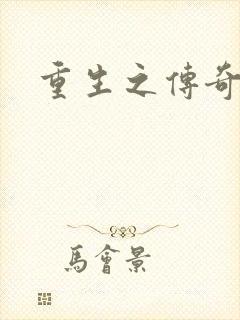 重生之傳奇
馬會景